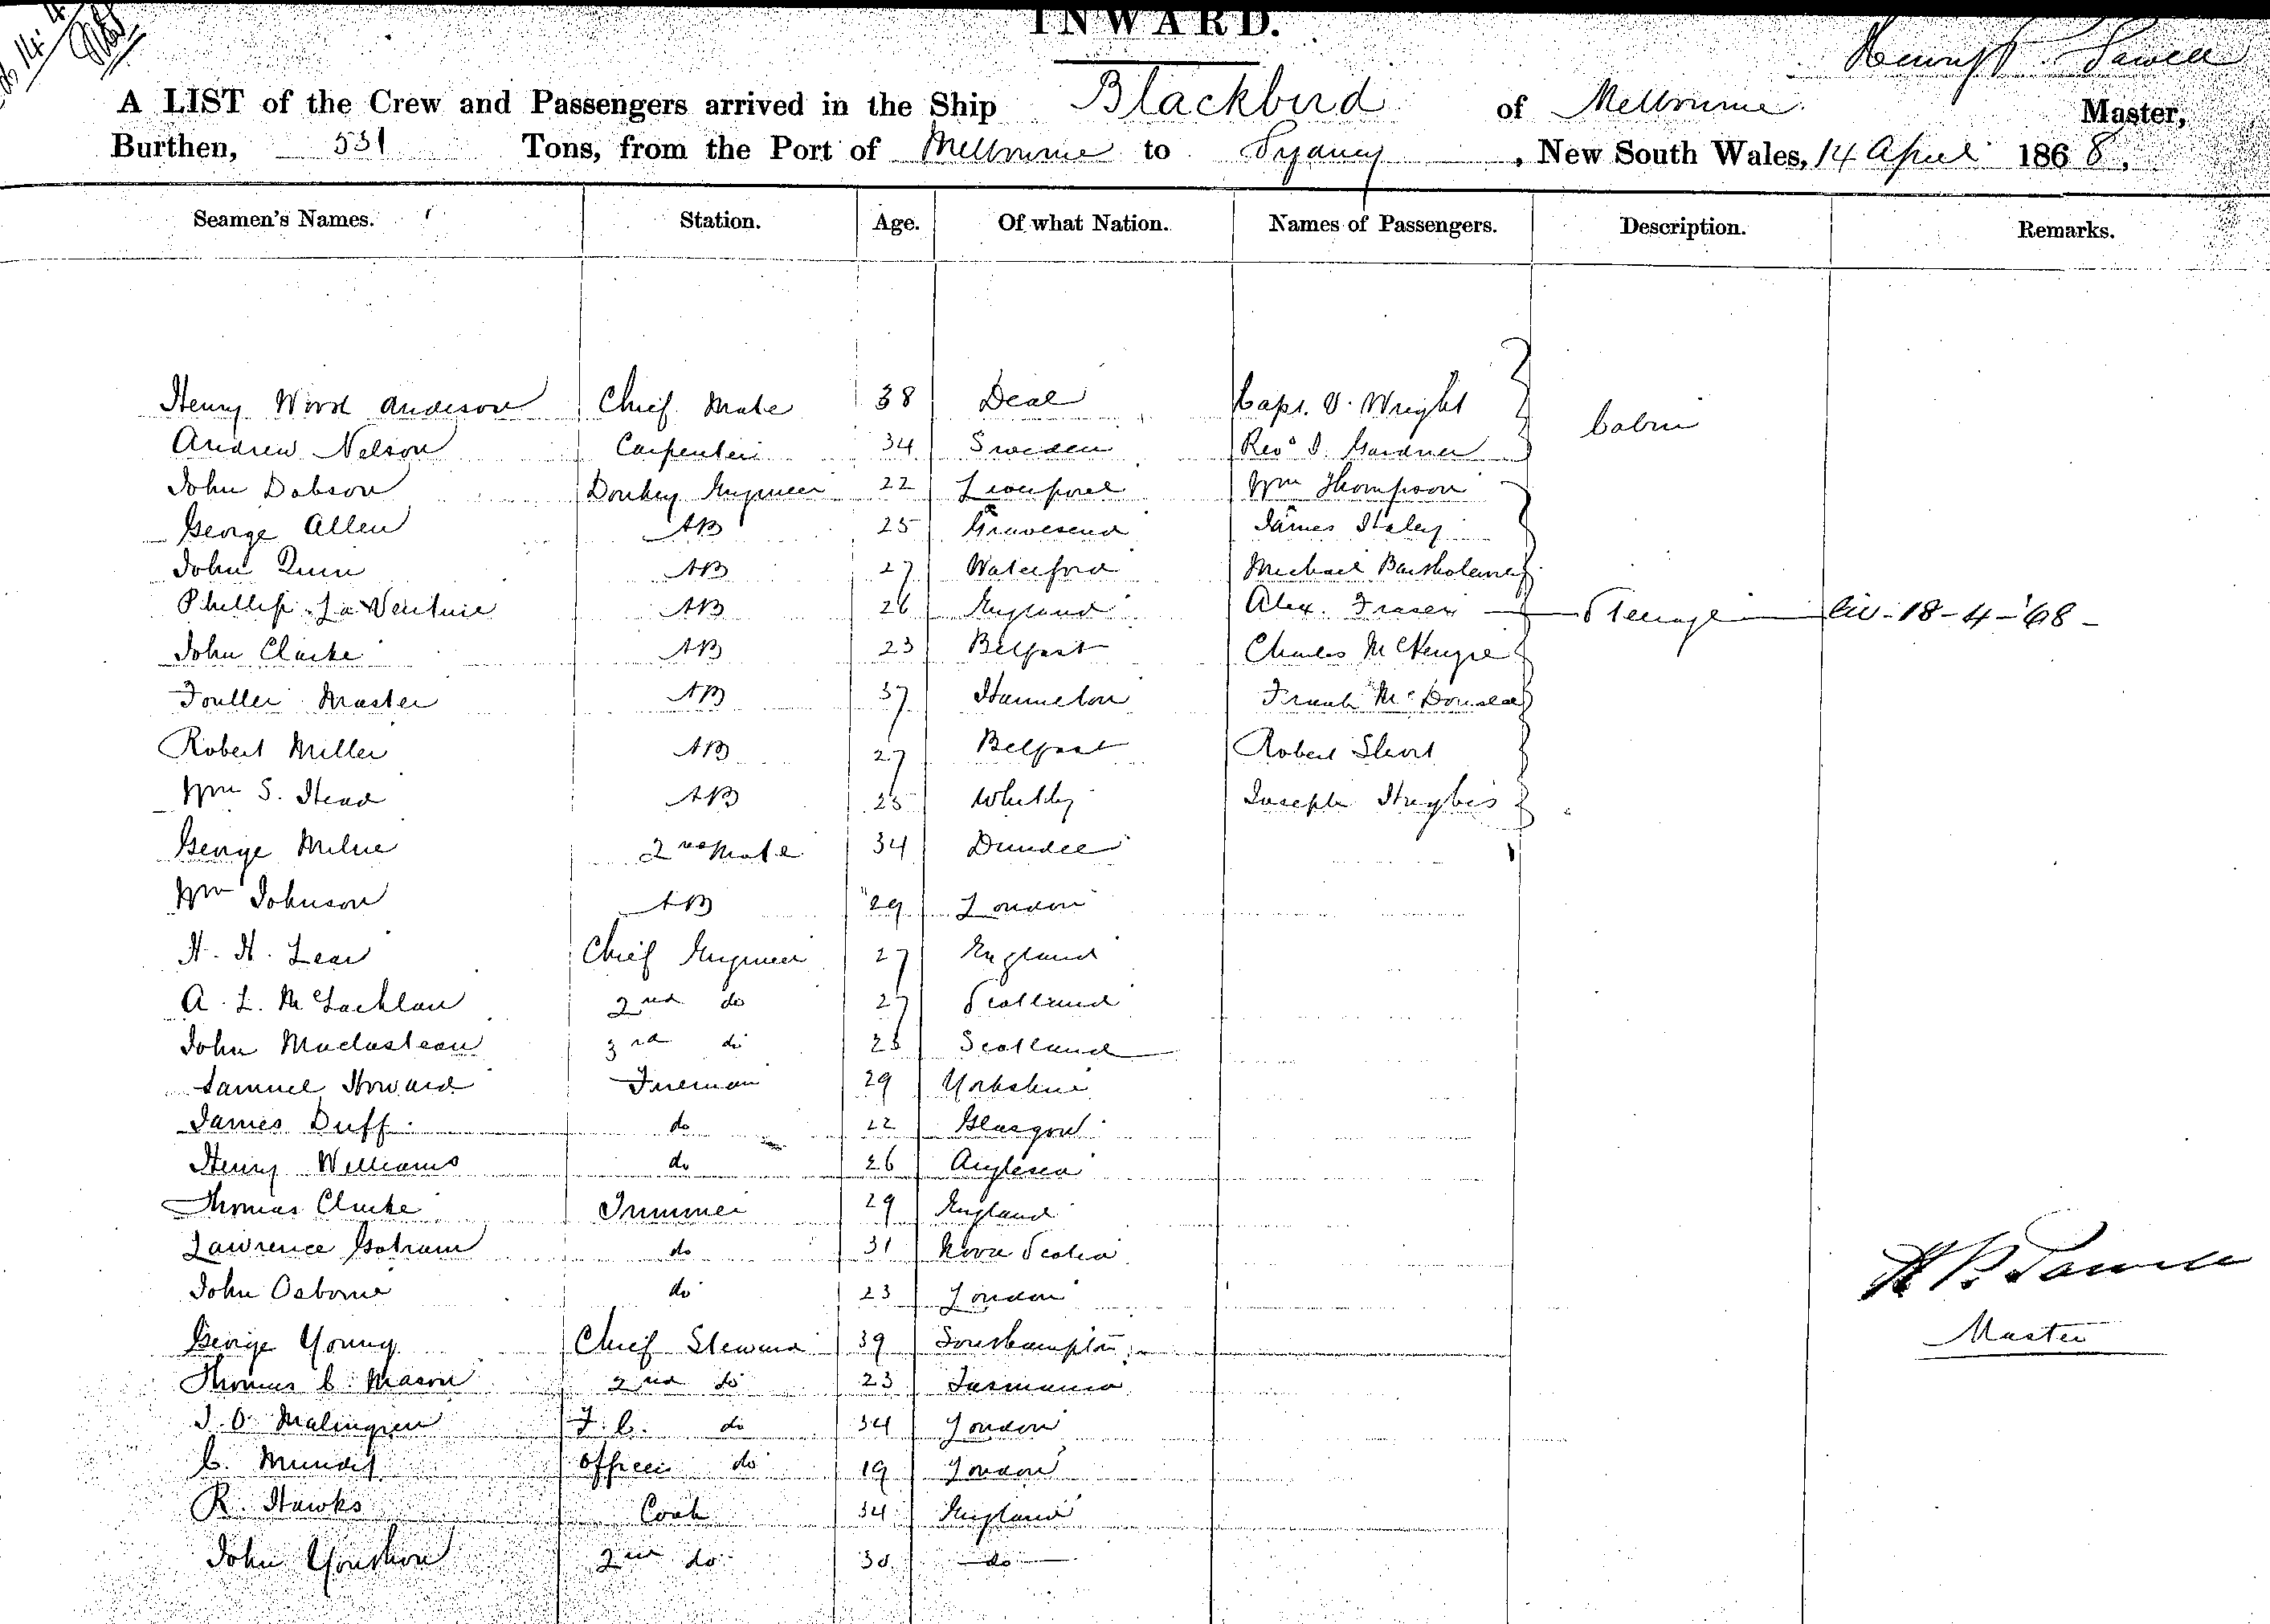 INWARD.
A LIST of the Crew and Passengers arrived in the Ship Blackbird of Melbourne Master,
Burthen, 531 Tons, from the Port of Melbourne to Sydney, New South Wales, 14 April 1868,
Seamen's Names. Station. Age. Of what Nation. Names of Passengers. Description. Remarks.
Henry Wood Anderson Chief Mate 38 Deal Capt. Wright Cabin
Andrew Nelson Carpenter 34 Sweden Revd Gardner
John Dobson Donkey Engineer 22 Liverpool Wm Thompson
George Allen AB 25 Gravesend James Haley
John Quin AB 27 Waterford Michael Bartholomew
Phillip La Venture AB 26 England Alex. Fraser Steerage 18-4-'68-
John Clarke AB 23 Belfast Charles McKenzie
Master AB 37 Frank McDonald
Robert Miller AB 27 Belfast Robert Short
Wm S. Head AB 25 Whitby Joseph Hughes
George Milne 2nd Mate 34 Dundee
Wm Johnson AB 29 London
H. H. Lear Chief Engineer 27 England
A. L. McLachlan 2nd do 27 Scotland
John 3rd do Scotland
Samuel Howard Fireman 29 Yorkshire
James Duff do 22 Glasgow
Henry Williams do 26 Anglesea
Thomas Clarke Trimmer 29 England
Lawrence do 31 Nova Scotia
John Osborne do 23 London
George Young Chief Steward 39 Southampton
Thomas C. Mason 2nd do 23 Tasmania
F.C. do 34 London
C. Officer do 19 London
R. Hawks Cook 34 England
John 2nd do 30 do
Master